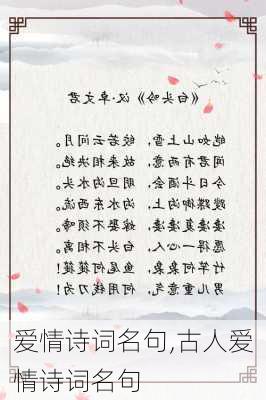 《白头吟》汉·卓文君
皑如山上雪，皎若云间月。
闻君有两意，故来相决绝。
今日斗酒会，明旦沟水头。
躞蹀御沟上，沟水东西流。
凄凄复凄凄，嫁娶不须啼。
愿得一心人，白头不相离。
竹竿何袅袅，鱼尾何簁簁！
男儿重意气，何用钱刀为！
爱情诗词名句,古人爱
情诗词名句